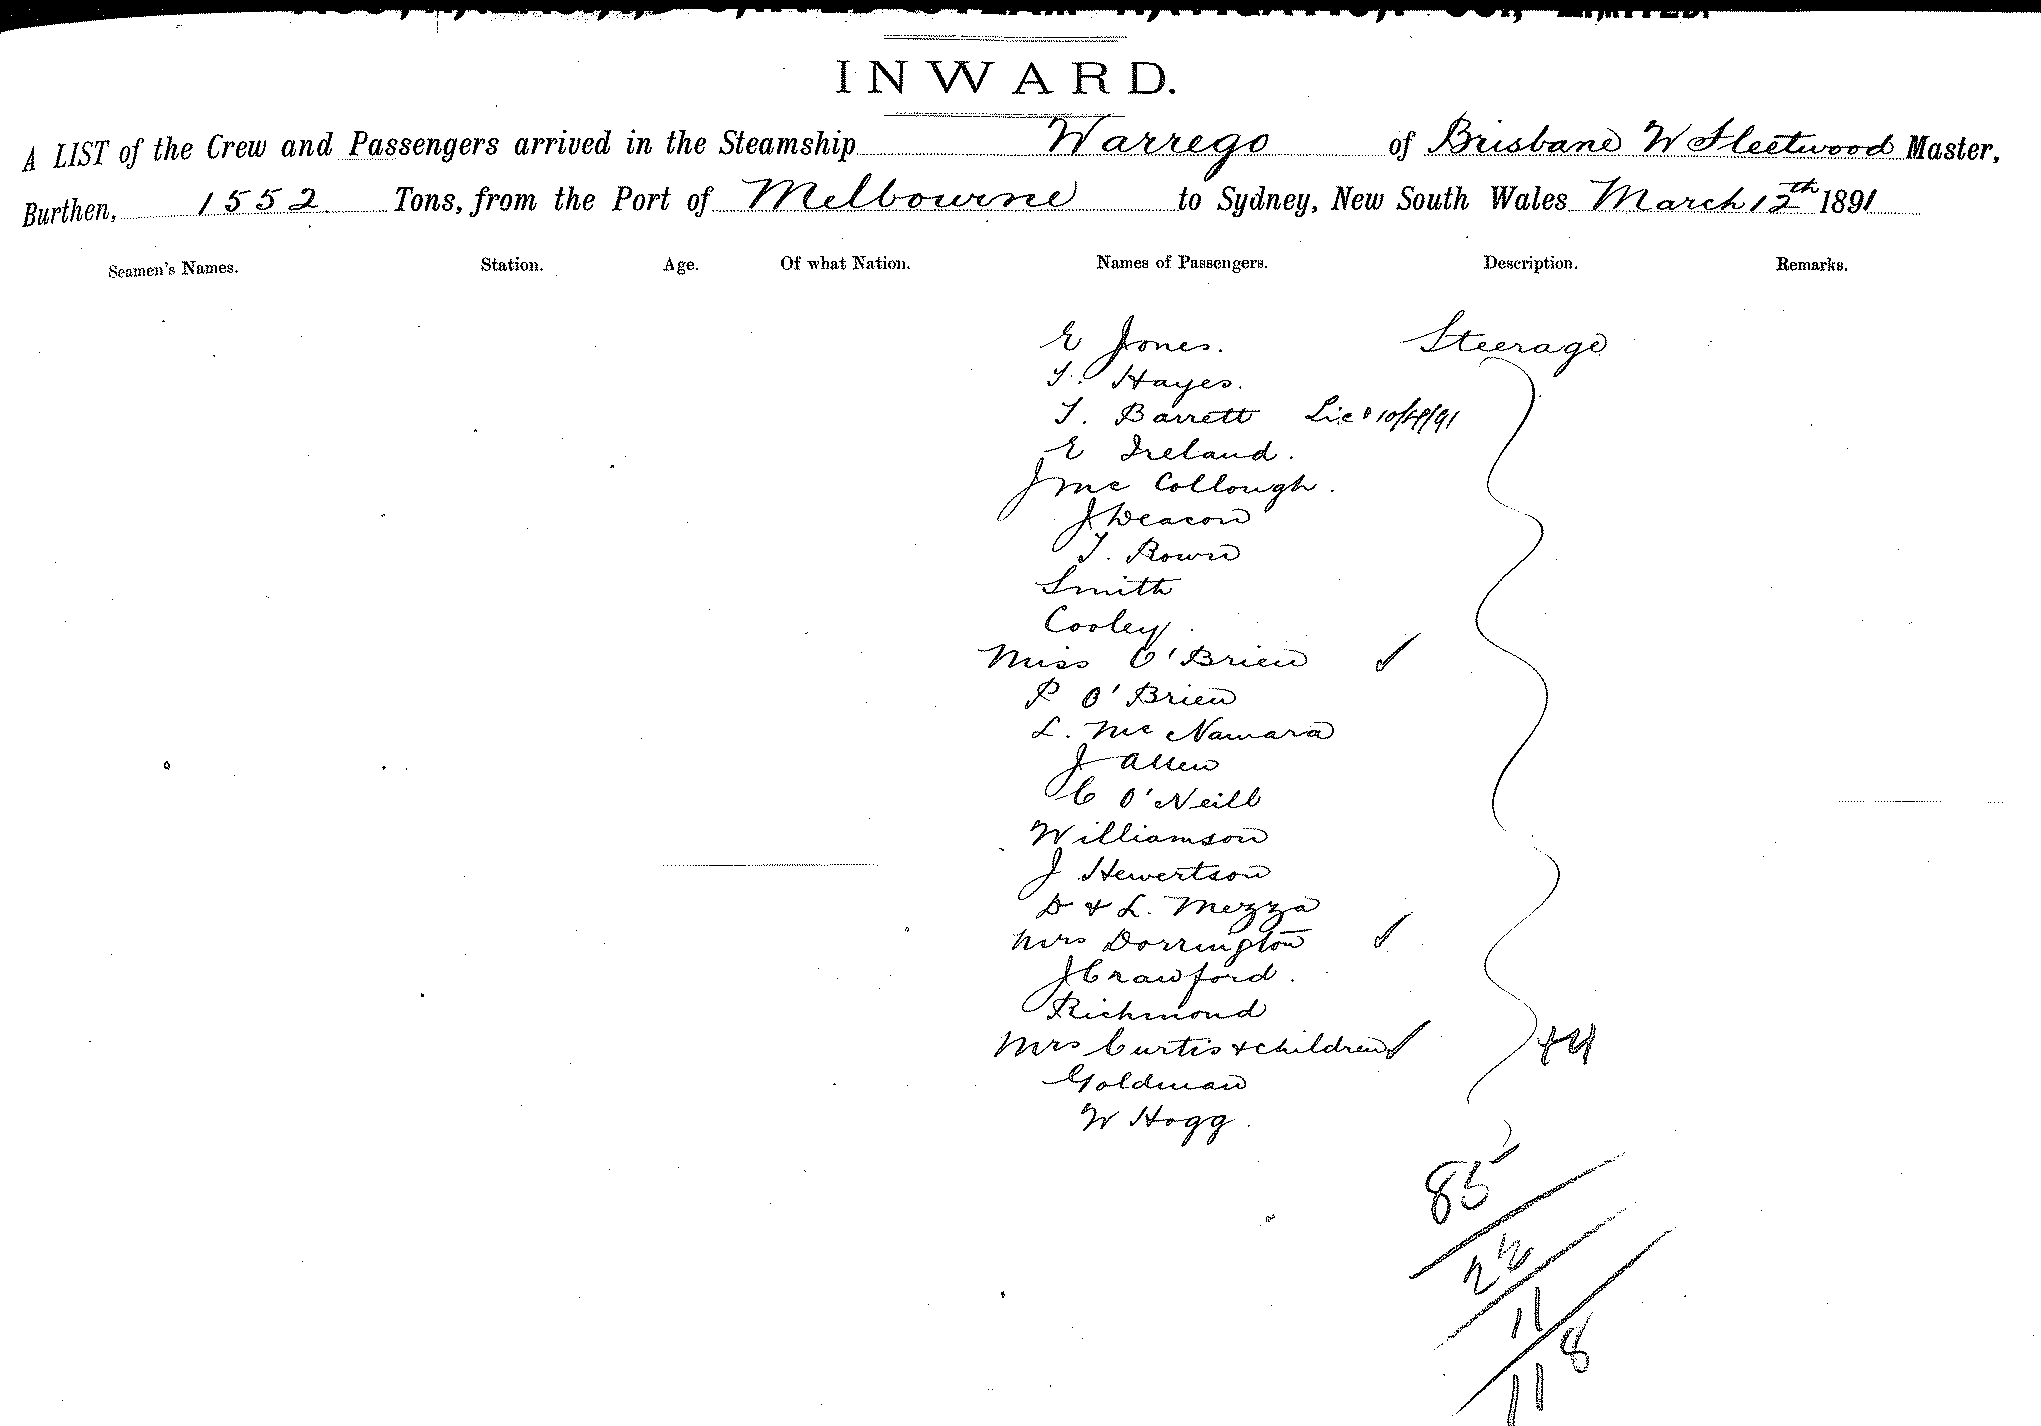 STEAM NAVIGATION CO., LIMITED.
INWARD.
A LIST of the Crew and Passengers arrived in the Steamship Warrego of Brisbane W Fleetwood Master,
Burthen, 1552 Tons, from the Port of Melbourne to Sydney, New South Wales March 12th 1891
Seamen's Names. Station. Age. Of what Nation. Names of Passengers. Description. Remarks.
E Jones. Steerage
T. Hayes.
T. Barrett 10/4/91
E Ireland.
J Mc Collough.
J Deacon
T. Bown
Smith
Cooley
Miss O'Brien ✓
P O'Brien
L. Mc Namara
J Allen
C O'Neill
Williamson
J Hewertson
D & L. Mezza
Mrs Dorrington ✓
J Crawford.
Richmond
Mrs Curtis & children ✓ 44
Goldman
W Hogg.
85
22
11
118